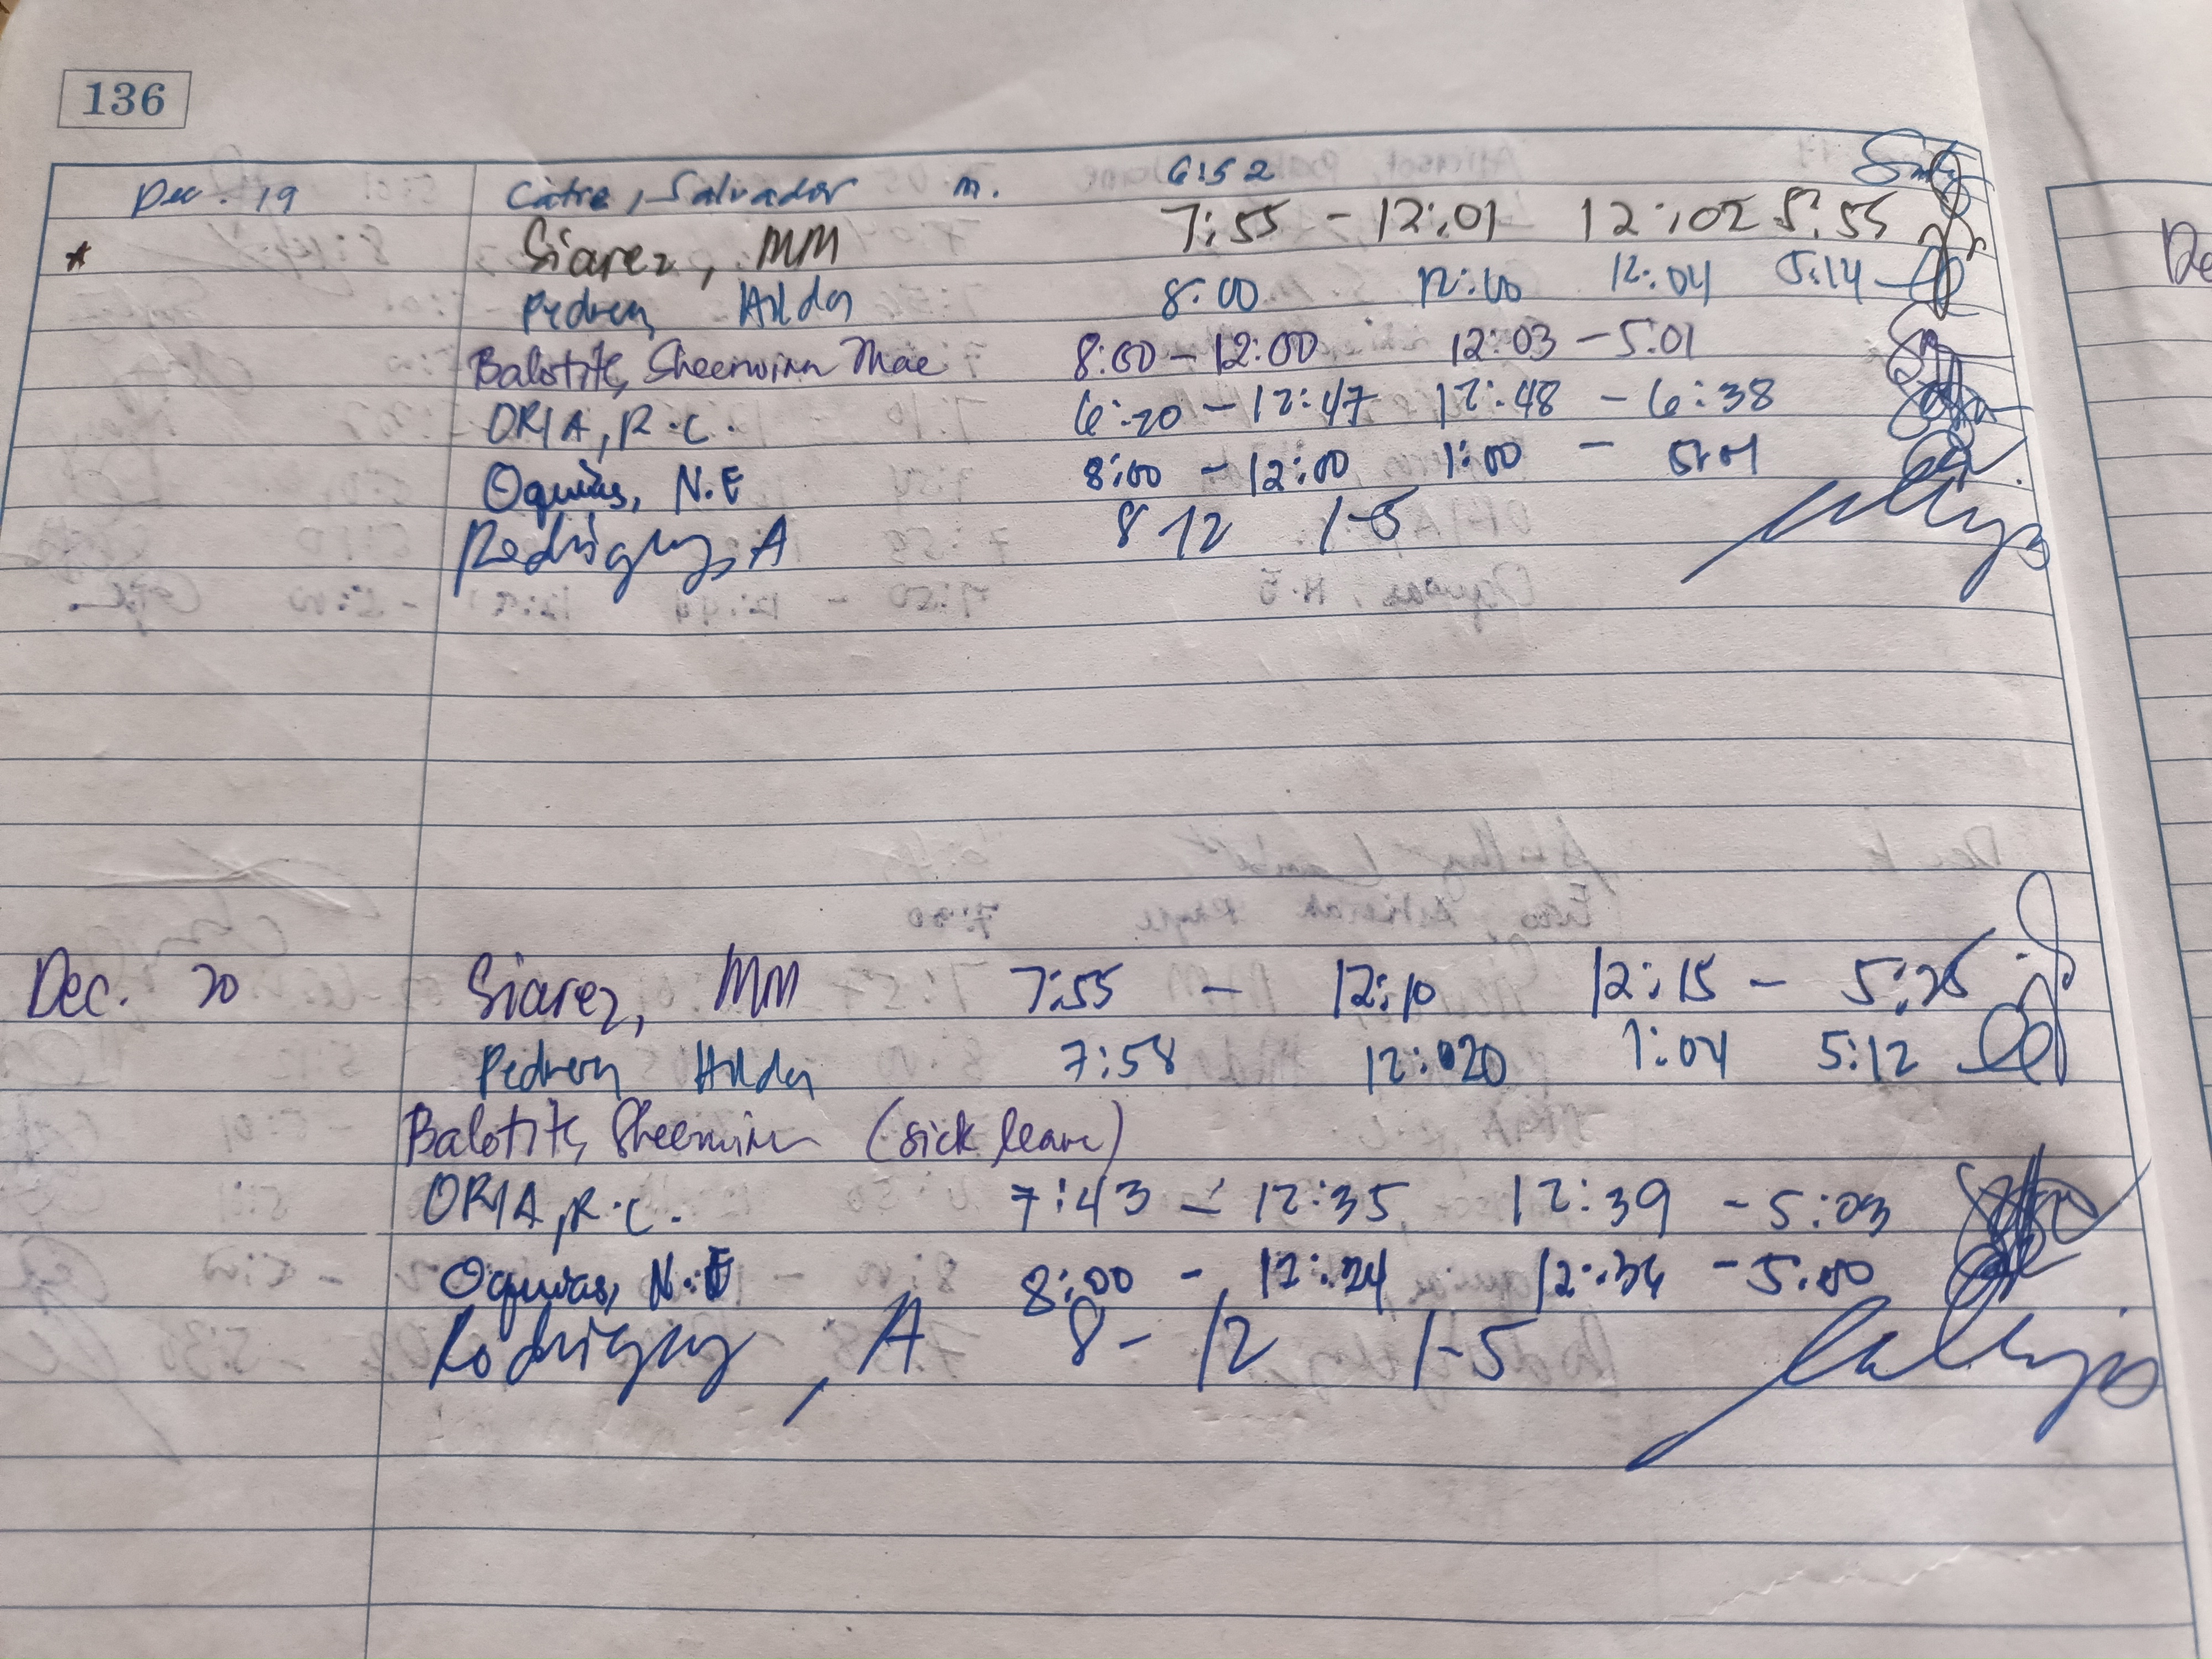 136
Dec. 19 Catre, Salvador m. 6:52
* Siarez, MM 7:55 - 12:01 12:02 5:55
Pedren Hilda 8:00 12:00 12:04 5:14
Balotite, Sheerwinn Mae 8:00 - 12:00 12:03 - 5:01
ORIA, R.C. 6:20 - 12:47 12:48 - 6:38
Oquias, N.E 8:00 - 12:00 1:00 - 5:01
Rodriguez, A 8 12 1-5
Dec. 20 Siarez, MM 7:55 - 12:10 12:15 - 5:25
Pedren Hilda 7:58 12:020 1:04 5:12
Balotite, Sheerwinn (sick leave)
ORIA, R.C. 7:43 - 12:35 12:39 - 5:03
Oquias, N.E 8:00 - 12:24 12:36 - 5:00
Rodriguez, A 8 - 12 1-5
De